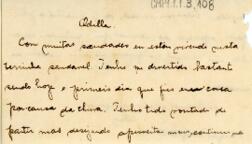 CMP1.1.3.108
Adilla.
Com muitas saudades eu estou vivendo nesta
terrinha saudavel. Tenho me divertido bastante
sendo hoje o primeiro dia que fico em casa
por causa da chuva. Tenho tido vontade de
partir mas desejando aproveitar continuo